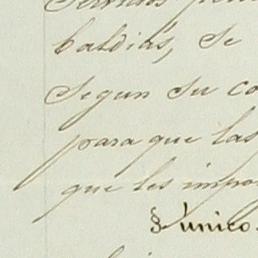 baldias, se
segun su co
para que las
que les impo
§ unico.